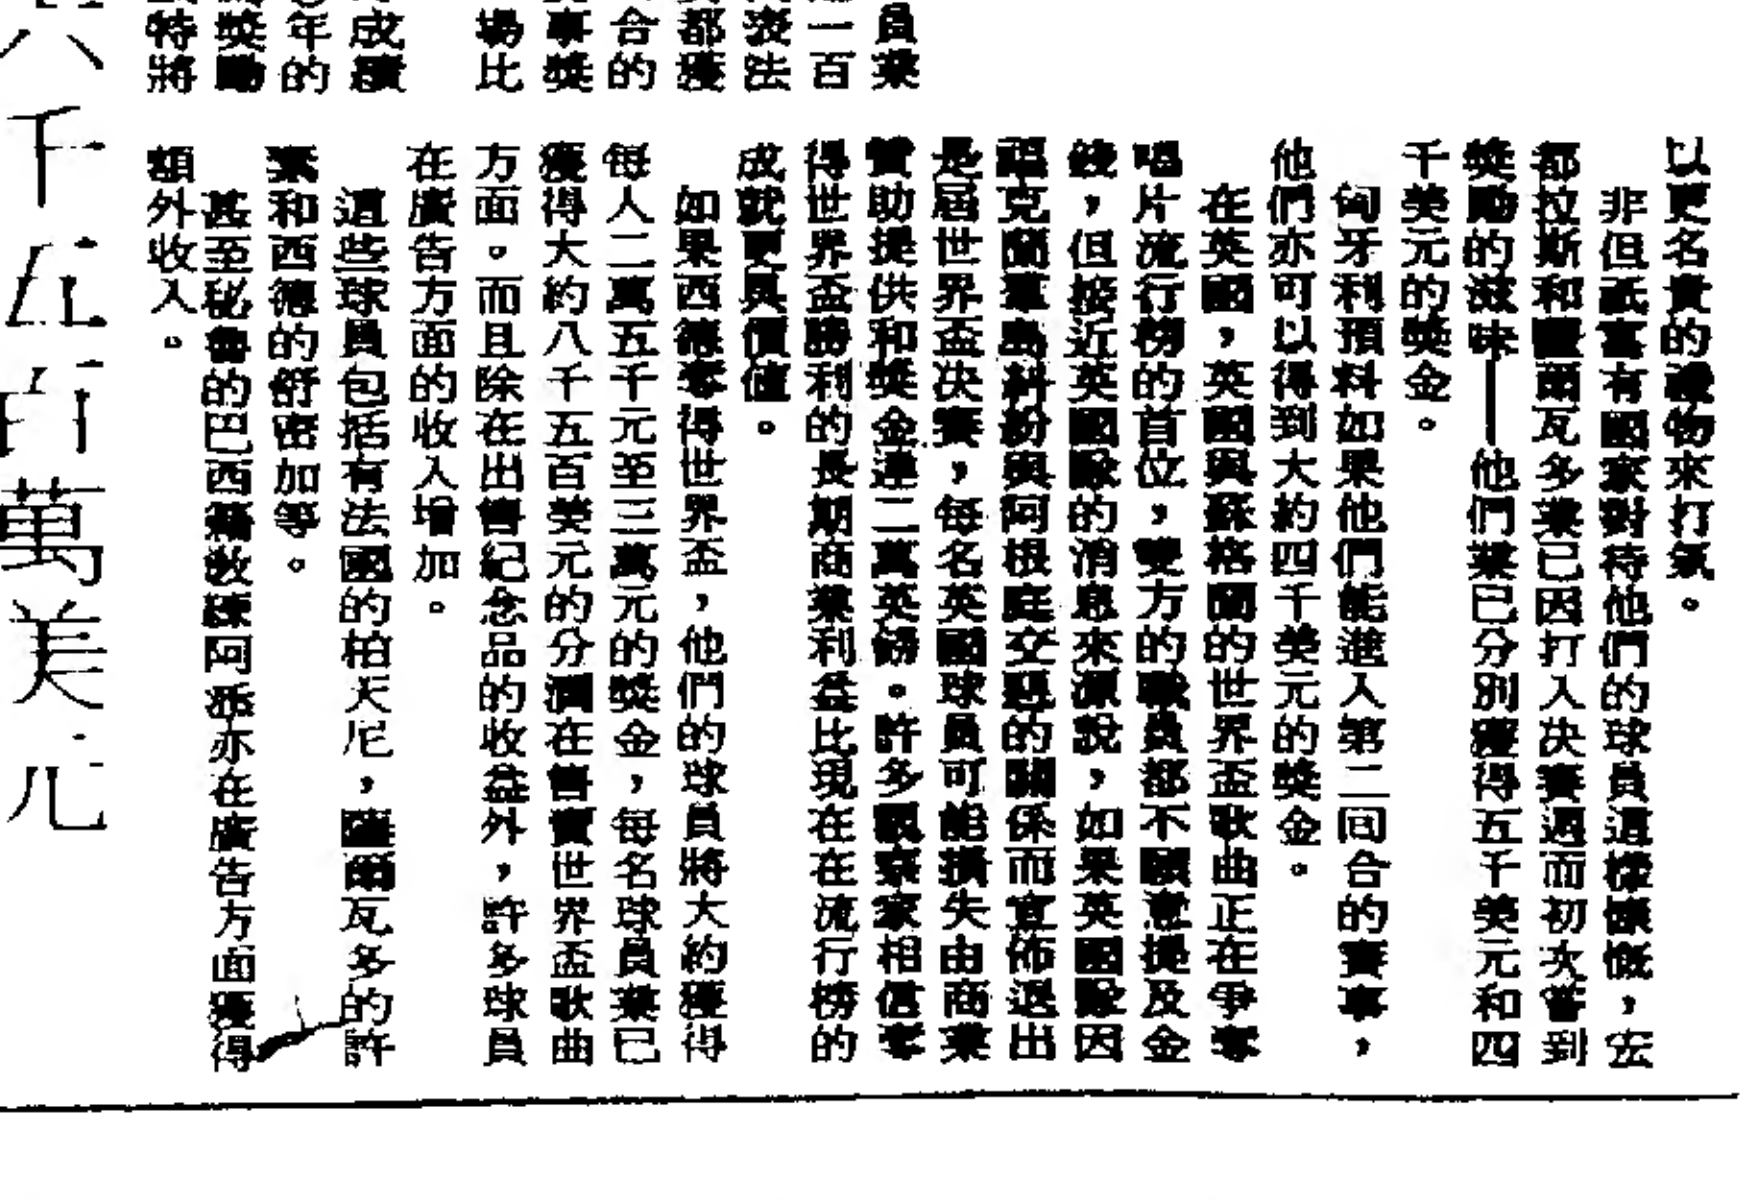 員業
一百
法
都獲
合的
事獎
場比
成績
年的
獎勵
特將
以更名貴的禮物來打氣。
非但祇富有國家對待他們的球員這樣慷慨，宏
都拉斯和薩爾瓦多業已因打入决賽週而初次嘗到
獎勵的滋味——他們業已分別獲得五千美元和四
千美元的獎金。
匈牙利預料如果他們能進入第二回合的賽事，
他們亦可以得到大約四千美元的獎金。
在英國，英國與蘇格蘭的世界盃歌曲正在爭奪
唱片流行榜的首位，雙方的職員都不願意提及金
錢，但接近英國隊的消息來源說，如果英國隊因
福克蘭羣島糾紛與阿根庭交惡的關係而宣佈退出
是屆世界盃决賽，每名英國球員可能損失由商業
贊助提供和獎金達二萬英鎊。許多觀察家相信奪
得世界盃勝利的長期商業利益比現在在流行榜的
成就更具價值。
如果西德奪得世界盃，他們的球員將大約獲得
每人二萬五千元至三萬元的獎金，每名球員業已
獲得大約八千五百美元的分潤在售賣世界盃歌曲
方面。而且除在出售紀念品的收益外，許多球員
在廣告方面的收入增加。
這些球員包括有法國的柏天尼，薩爾瓦多的許
和西德的舒密加等。
甚至秘魯的巴西籍教練阿派亦在廣告方面獲得
額外收入。
六千五百萬美元